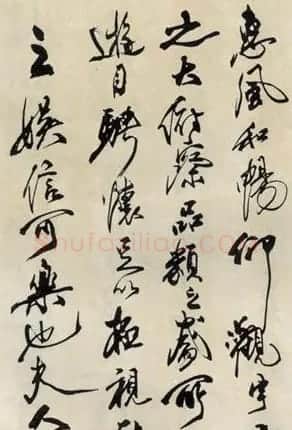 惠風和暢仰觀宇
之大俯察品類之盛所
遊目騁懷足以極視
之娛信可樂也夫人